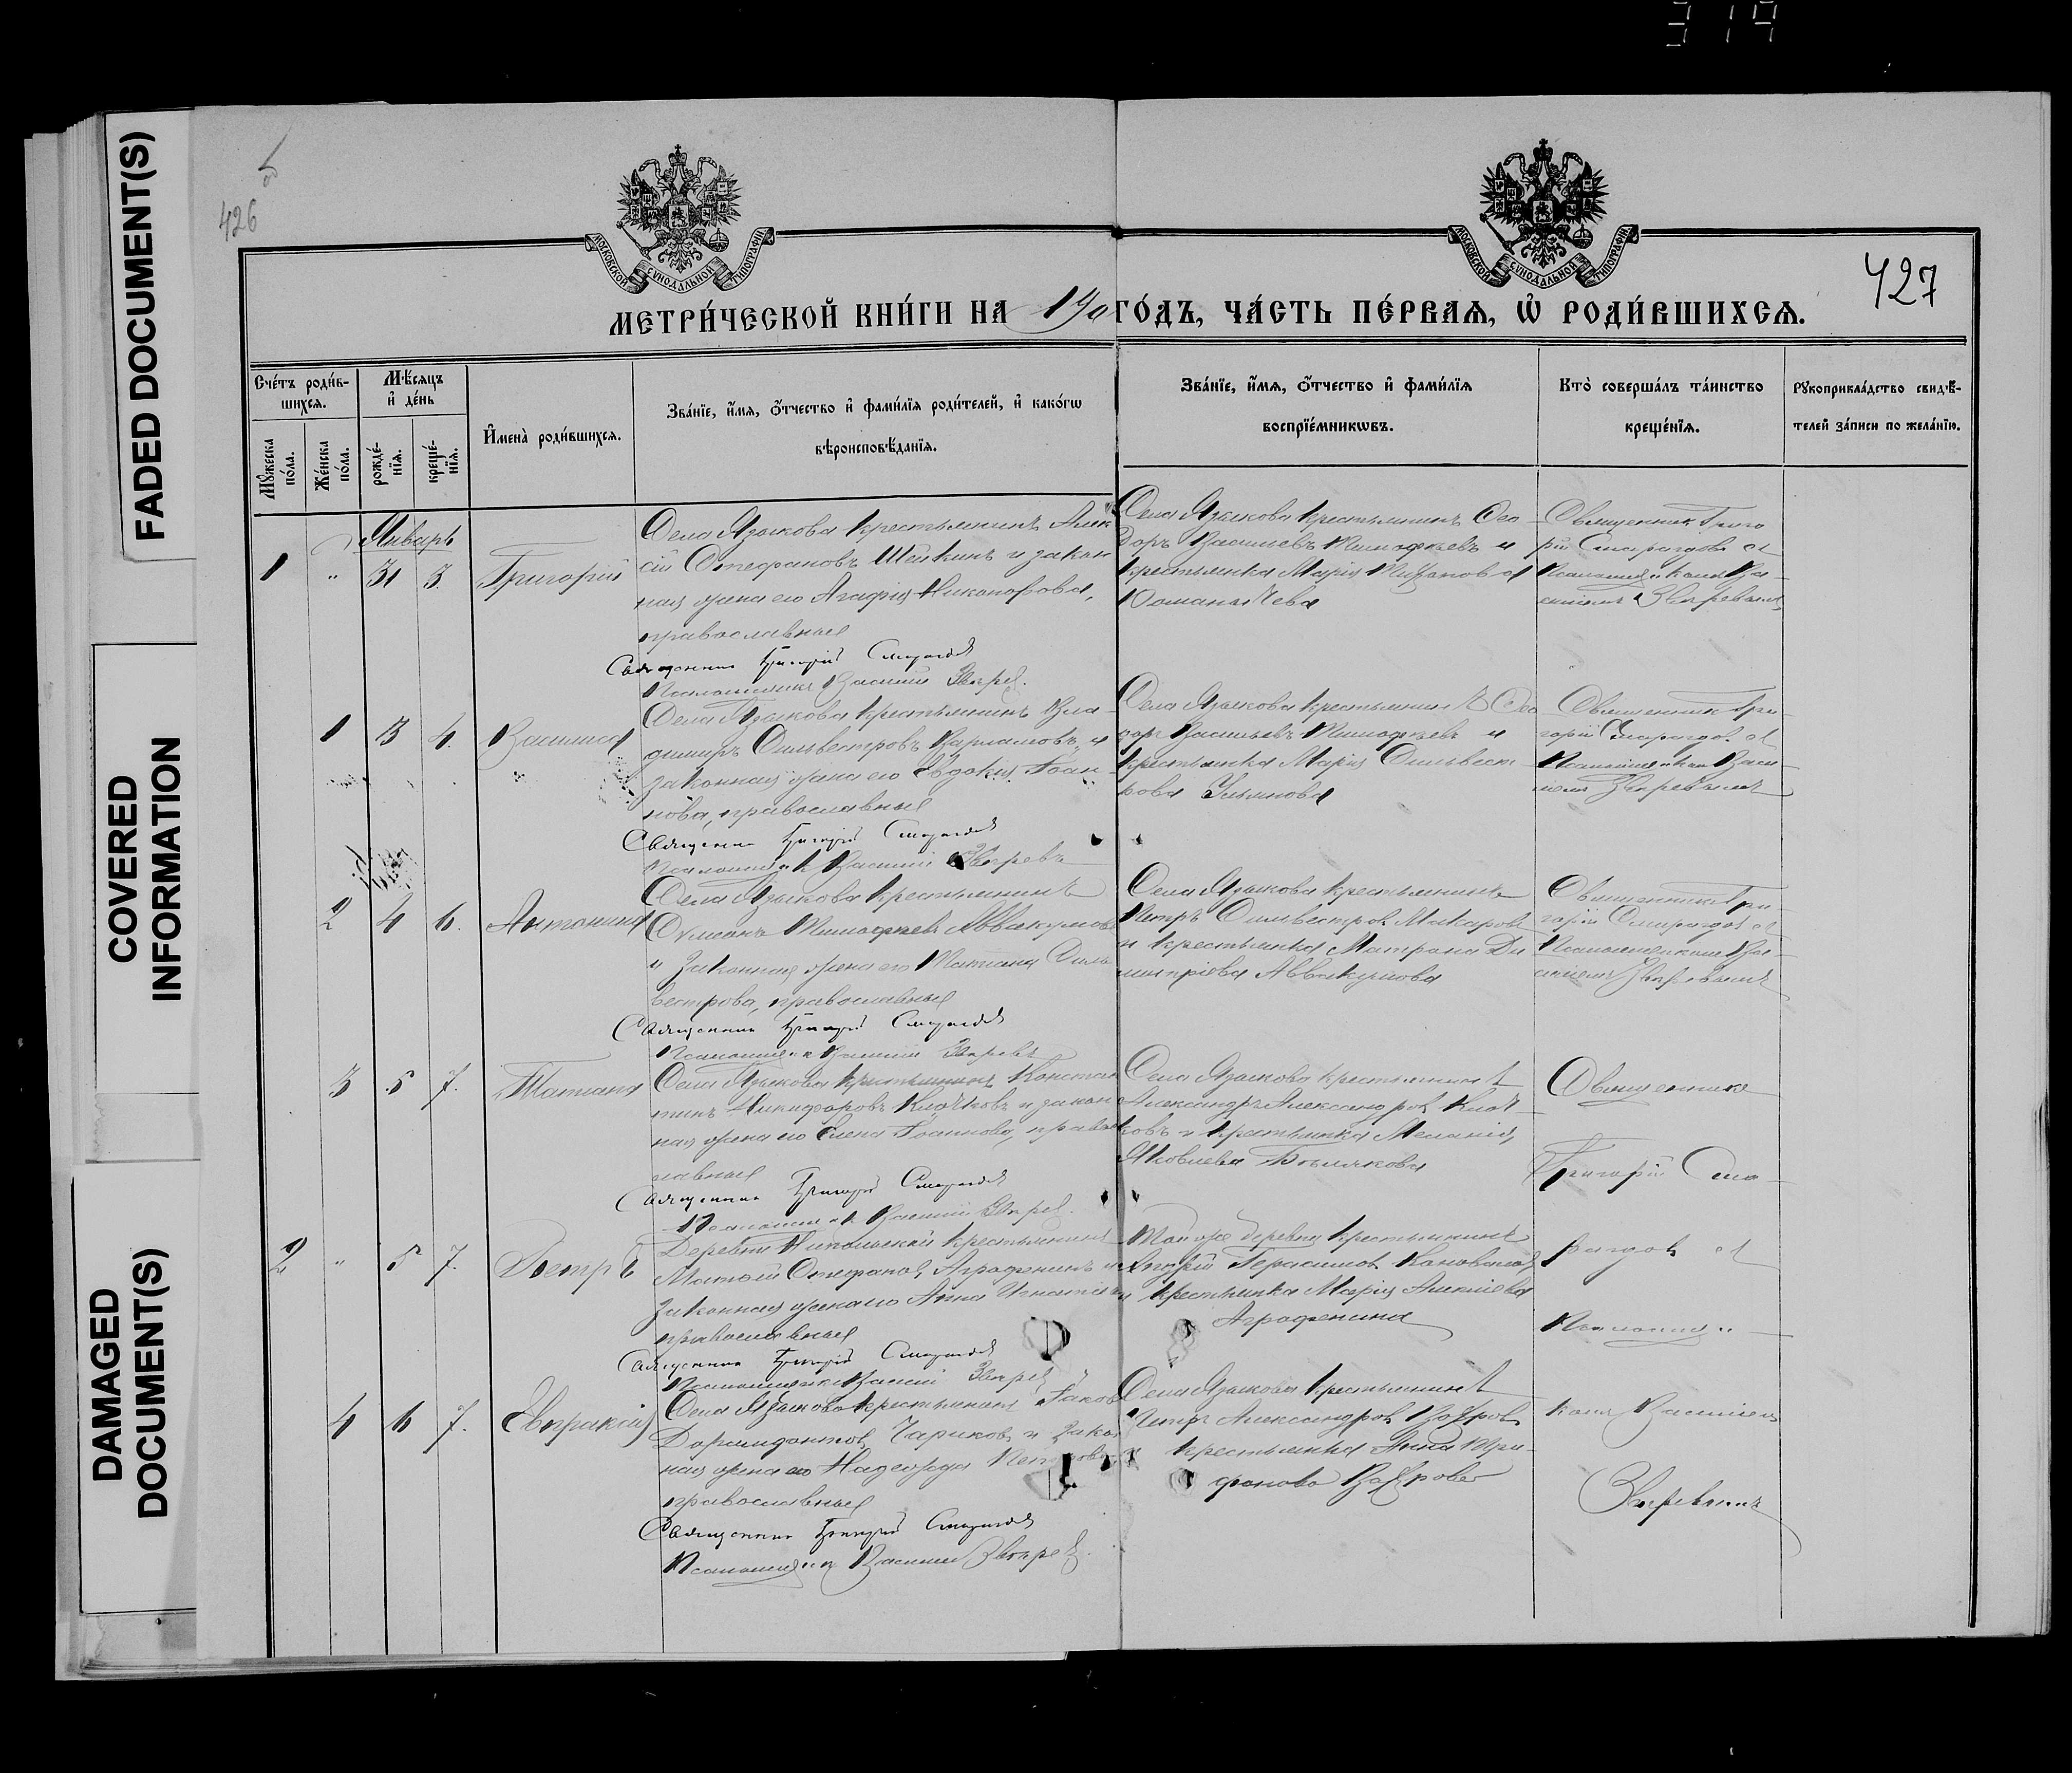 319
FADED DOCUMENT(S)
COVERED
INFORMATION
DAMAGED
DOCUMENT(S)
426
427
МОСКОВСКОЙ СѴНОДАЛЬНОЙ ТИПОГРАФІИ
МОСКОВСКОЙ СѴНОДАЛЬНОЙ ТИПОГРАФІИ
МЕТРИ́ЧЕСКОЙ КНИ́ГИ НА 190 ГО́ДЪ, ЧА́СТЬ ПЕ́РВАѦ, Ѽ РОДИ́ВШИХСѦ.
Сче́тъ роди́в-
шихсѧ.
Мꙋ́жеска по́ла.
Же́нска по́ла.
Мѣ́сѧцъ и҆ де́нь
рожде́-нїѧ.
креще́-нїѧ.
И҆мена̀ роди́вшихсѧ.
Зва́нїе, и҆́мѧ, ѻ҆́тчество и҆ фами́лїѧ роди́телей, и҆ како́гѡ
вѣроисповѣ́данїѧ.
Зва́нїе, и҆́мѧ, ѻ҆́тчество и҆ фами́лїѧ
воспрїе́мникѡвъ.
Кто̀ соверша́лъ та́инство
креще́нїѧ.
Рꙋкоприкла́дство свидѣ́-
телей за́писи по жела́нїю.
Январь
1 " 31 3. Григорій
Села Языкова крестьянинъ Алек
сій Стефановъ Шейкинъ и закон
ная жена его Агафія Никанорова,
православные
Священникъ Григорій Смарагдовъ
Псаломщикъ Василій Звѣрев
Села Языкова крестьянинъ Ѳео
доръ Васильевъ Тимофѣевъ и
крестьянка Марія
Священникъ Григо
рій Смарагдовъ съ
Псаломщикомъ Ва-
силіемъ Звѣревымъ
1 3 4. Василисса
Села Языкова крестьянинъ Вла
димиръ Сильвестровъ Варламовъ и
законная жена его Евдокія Іоан-
нова, православные
Священникъ Григорій Смарагдовъ
Псаломщикъ Василій Звѣревъ
Села Языкова крестьянинъ Ѳео
доръ Васильевъ Тимофѣевъ и
крестьянка Марія Сильвест
рова Ульянова
Священникъ Гри-
горій Смарагдовъ съ
Псаломщикомъ Васи
ліемъ Звѣревымъ
2 4 6. Антонина
Села Языкова крестьянинъ
Сѵмеонъ Тимофѣевъ Аввакумовъ
и законная жена его Татіана Силь
вестрова, православные
Священникъ Григорій Смарагдовъ
Псаломщикъ Василій Звѣревъ
Села Языкова крестьянинъ
Петръ Сильвестровъ Макаровъ
и крестьянка Матрона Ди
митріева Аввакумова
Священникъ Гри-
горій Смарагдовъ съ
Псаломщикомъ Ва-
силіемъ Звѣревымъ
3 5 7. Татіана
Села Языкова крестьянинъ Констан
тинъ Никифоровъ Клочковъ и закон
ная жена его Елена Іоаннова, правос
лавные
Священникъ Григорій Смарагдовъ
Псаломщикъ Василій Звѣрев
Села Языкова крестьянинъ
Александръ Александровъ Клоч-
ковъ и крестьянка Меланія
Яковлева
Священникъ
Григорій Сма-
2 " 5 7. Петръ
Деревни Никольской крестьянинъ
Стефановъ Аграфенинъ и
законная жена его Анна Игнатіева
православные
Священникъ Григорій Смарагдовъ
Псаломщикъ Василій Звѣрев
Той же деревни крестьянинъ
Герасимовъ
и крестьянка Марія Алексіева
Аграфенина
рагдовъ съ
Псаломщи-
4 6 7. Евпраксія
Села Языкова крестьянинъ Іаковъ
Доримедонтовъ Чариковъ и закон
ная жена его Надежда Петрова
православные
Священникъ Григорій Смарагдовъ
Псаломщикъ Василій Звѣревъ
Села Языкова крестьянинъ
Петръ Александровъ Бобровъ
крестьянка Анна Три-
фонова Боброва
комъ Василіемъ
Звѣревымъ